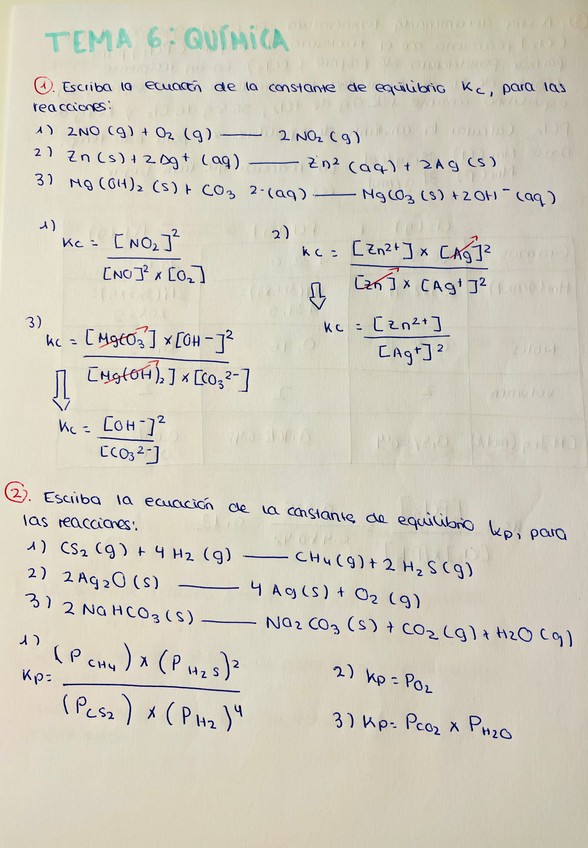 TEMA 6: QUÍMICA
1. Escriba la ecuación de la constante de equilibrio Kc, para las
reacciones:
1) 2NO (g) + O2 (g) —— 2NO2 (g)
2) Zn (s) + 2Ag+ (aq) —— Zn2 (aq) + 2Ag (s)
3) Mg(OH)2 (s) + CO3 2-(aq) —— MgCO3 (s) + 2OH- (aq)
1) Kc = [NO2]^2 / [NO]^2 x [O2]
2) Kc = [Zn2+] x [Ag]^2 / [Zn] x [Ag+]^2
⇓ Kc = [Zn2+] / [Ag+]^2
3) Kc = [MgCO3] x [OH-]^2 / [Mg(OH)2] x [CO3^2-]
⇓ Kc = [OH-]^2 / [CO3^2-]
2. Escriba la ecuación de la constante de equilibrio Kp, para
las reacciones:
1) CS2 (g) + 4H2 (g) —— CH4 (g) + 2 H2S (g)
2) 2Ag2O (s) —— 4 Ag (s) + O2 (g)
3) 2 NaHCO3 (s) —— Na2CO3 (s) + CO2 (g) + H2O (g)
1) Kp = (PCH4) x (PH2S)^2 / (PCS2) x (PH2)^4
2) Kp = PO2
3) Kp = PCO2 x PH2O